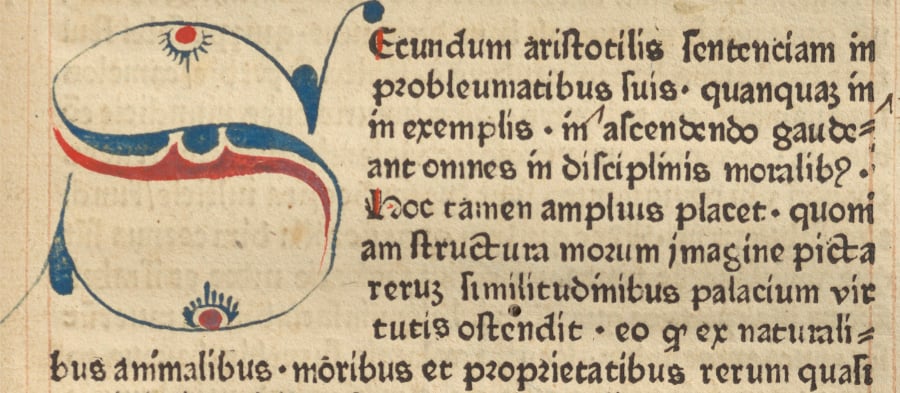 SEcundum aristotilis sentenciam in
probleumatibus suis. quanquaꝫ in
in exemplis. in ascendendo gaude⸗
ant omnes in disciplinis moralibꝰ.
Hoc tamen amplius placet. quoni
am structura morum jmagine picta
reruꝫ similitudinibus palacium vir
tutis ostendit. eo ꝙ ex naturali⸗
bus animalibus. moribus et proprietatibus rerum quasi